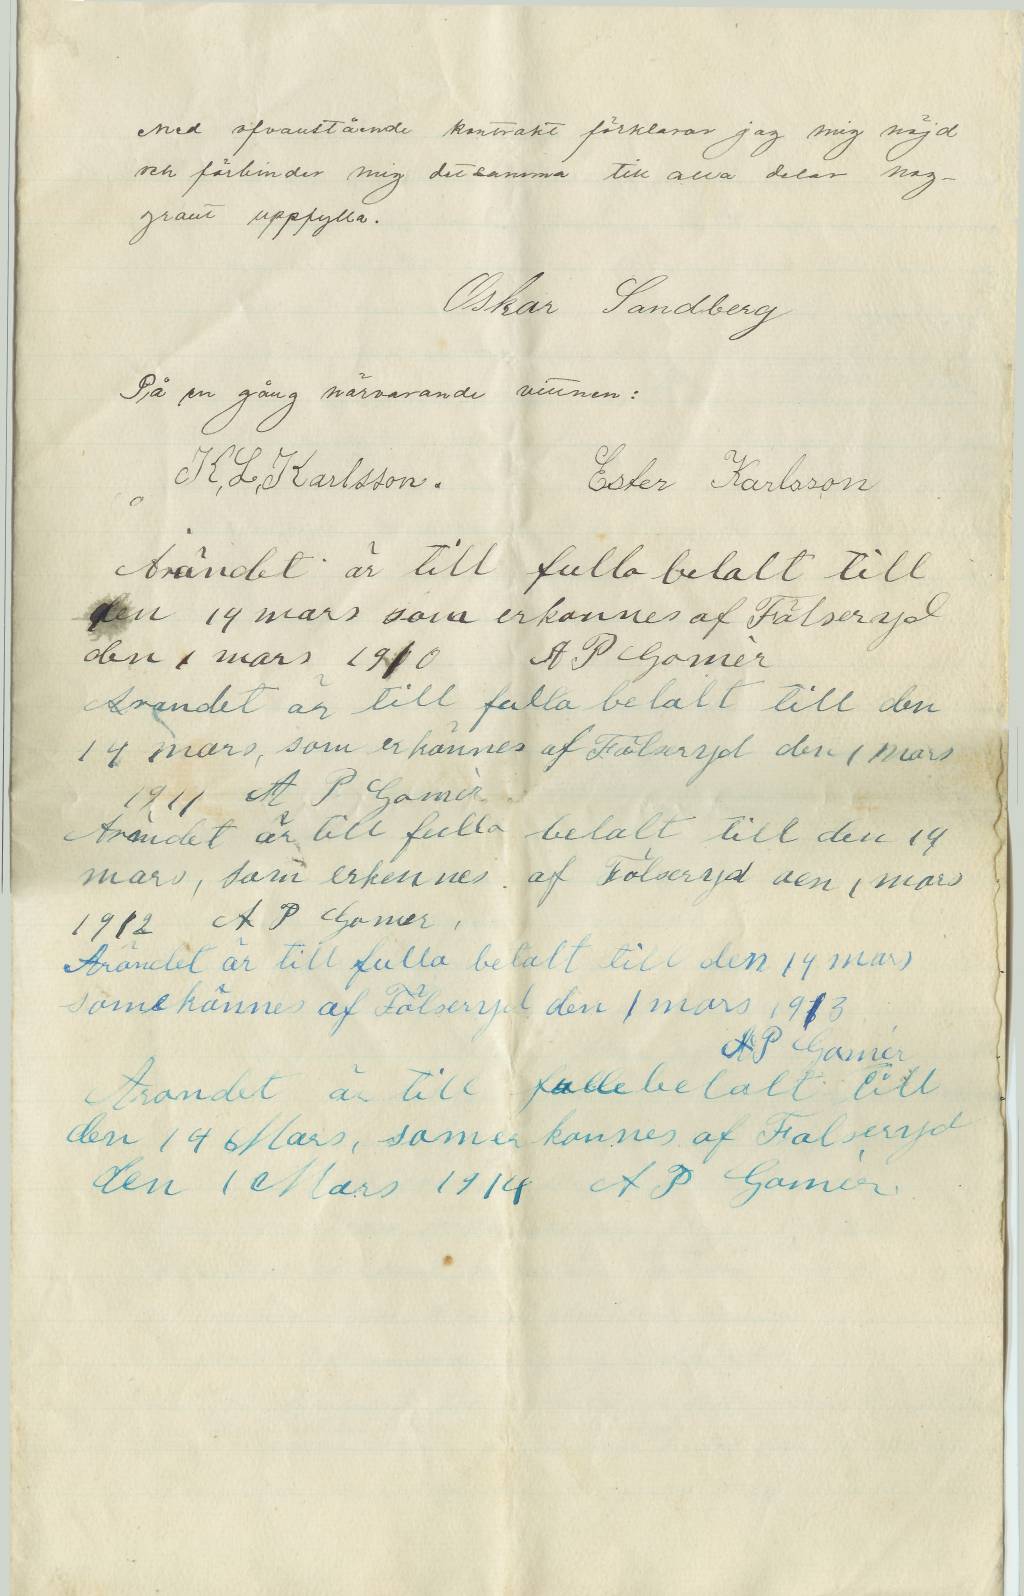 Med ofvanstående kontrakt förklarar jag mig nöjd
och förbinder mig detsamma till alla delar nog-
grant uppfylla.
Oskar Sandberg
På en gång närvarande vittnen:
K, L, Karlsson.
Ester Karlsson
Arändet är till fulla betalt till
den 14 mars som erkonnes af Fölseryd
den 1 mars 1910 A P Gomèr
Arandet är till fulla betalt till den
14 mars, som erkännes af Fölseryd den 1 mars
1911 A P Gomèr
Arändet är till fulla betalt till den 14
mars, som erkennes af Fölseryd den 1 mars
1912 A P Gomer
Arändet är till fulla betalt till den 14 mars
som ekännes af Fölseryd den 1 mars 1913
A P Gomér
Arandet är till fulle betalt till
den 14 Mars, som erkonnes af Falseryd
den 1 Mars 1914 A P Gomér.